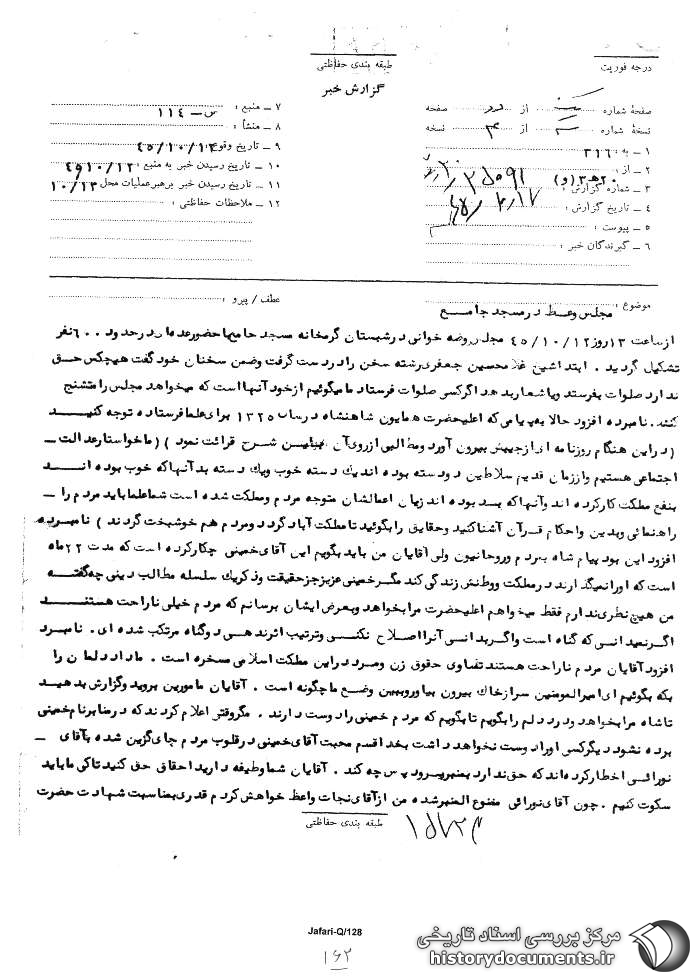 طبقه بندی حفاظتی
درجه فوریت
گزارش خبر
صفحهٔ شماره یک از دو صفحه
نسخهٔ شماره از نسخه
۱ ــ به : ۳۱۶
۲ ــ از : ۲۰ه‍۳ (و)
۳ ــ شماره گزارش :
۴ ــ تاریخ گزارش :
۵ ــ پیوست :
۶ ــ گیرندگان خبر :
۷ ــ منبع : س ــ ۱۱۴
۸ ــ منشأ :
۹ ــ تاریخ وقوع :
۱۰ ــ تاریخ رسیدن خبر به منبع :
۱۱ ــ تاریخ رسیدن خبر برهبر عملیات محل :
۱۲ ــ ملاحظات حفاظتی :
موضوع : مجلس وعظ در مسجد جامع
عطف / پیرو :
از ساعت ۱۳ روز ۴۵/۱۰/۱۲ مجلس روضه خوانی در شبستان گرمخانه مسجد جامع با حضور عده ای در حدود ۶۰۰ نفر
تشکیل گردید . ابتدا شیخ غلامحسین جعفری رشته سخن را در دست گرفت و ضمن سخنان خود گفت هیچکس حق
ندارد صلوات بفرستد و یا شعار بدهد اگر کسی صلوات فرستاد ما میگوئیم از خود آنها است که میخواهد مجلس را متشنج
کند . نامبرده افزود حالا به پیامی که اعلیحضرت همایون شاهنشاه در سال ۱۳۲۵ برای علما فرستاده توجه کنید
( در این هنگام روزنامه ای از جیبش بیرون آورد و مطالبی از روی آن باین شرح قرائت نمود ) ( ما خواستار عدالت ــ
اجتماعی هستیم و از زمان قدیم سلاطین دو دسته بوده اند یک دسته خوب و یک دسته بد آنها که خوب بوده اند
بنفع مملکت کار کرده اند و آنها که بد بوده اند زیان اعمالشان متوجه مردم و مملکت شده است شما علما باید مردم را ــ
راهنمائی و بدین و احکام قرآن آشنا کنید و حقایق را بگوئید تا مملکت آباد گردد و مردم هم خوشبخت گردند ) نامبرده
افزود این بود پیام شاه به مردم و روحانیون ولی آقایان من باید بگویم این آقای خمینی چکار کرده است که مدت ۲۲ ماه
است که او را نمیگذارند در مملکت و وطنش زندگی کند مگر خمینی عزیز جز حقیقت و ذکر یک سلسله مطالب دینی چه گفته
من هیچ نظری ندارم فقط میخواهم اعلیحضرت مرا بخواهد و بعرض ایشان برسانم که مردم خیلی ناراحت هستند
اگر نمیدانسی که گناه است و اگر بدانسی آنرا اصلاح نکنسی و ترتیب اثر ندهی دو گناه مرتکب شده ای . نامبرده
افزود آقایان مردم ناراحت هستند تساوی حقوق زن و مرد در این مملکت اسلامی مسخره است . ما درد دلمان را
بکه بگوئیم ای امیرالمومنین سر از خاک بیرون بیاور و ببین وضع ما چگونه است . آقایان مامورین بروید و گزارش بدهید
تا شاه مرا بخواهد و درد دلم را بگویم تا بگویم که مردم خمینی را دوست دارند . مگر وقتی اعلام کردند که در منابر نام خمینی
برده نشود دیگر کسی او را دوست نخواهد داشت بخدا قسم محبت آقای خمینی در قلوب مردم جایگزین شده بآقای ــ
نورائی اخطار کرده اند که حق ندارد بمنبر برود پس چه کند . آقایان شما وظیفه دارید احقاق حق کنید تا کی ما باید
سکوت کنیم . چون آقای نورائی ممنوع المنبر شده من از آقای نجات واعظ خواهش کردم قدری بمناسبت شهادت حضرت
طبقه بندی حفاظتی
Jafari-Q/128
۱۶۲
مرکز بررسی اسناد تاریخی
historydocuments.ir